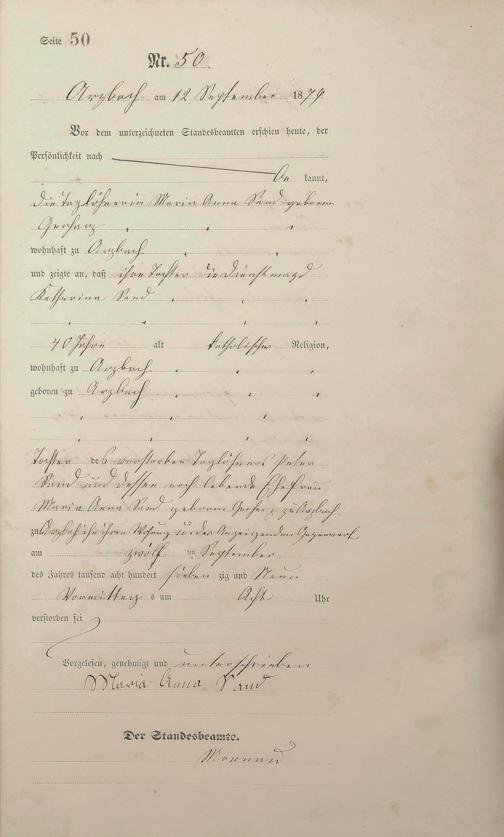 Seite 50
Nr. 50.
Arzbach am 12 September 1879.
Vor dem unterzeichneten Standesbeamten erschien heute, der
Persönlichkeit nach
be kannt,
die Taglöhnerin Maria Anna Sand geborene
Gerharz
wohnhaft zu Arzbach
und zeigte an, daß ihre Tochter die Dienstmagd
Katharina Sand
40 Jahre alt katholischer Religion,
wohnhaft zu Arzbach
geboren zu Arzbach
Tochter des verstorben Taglöhners Peter
Sand und dessen noch lebende Ehefrau
Maria Anna Sand geborene zu Arzbach
zu Arzbach in ihrer Wohnung in der Anzeigenden Gegenwart
am zwölf ten September
des Jahres tausend acht hundert sieben zig und Neun
Vormittags um Acht Uhr
verstorben sei
Vorgelesen, genehmigt und unterschrieben
Maria Anna Sand
Der Standesbeamte.